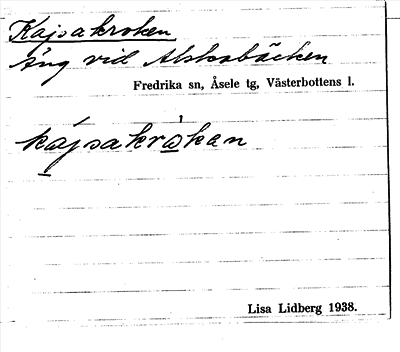 Kajsakroken
Äng vid
Fredrika sn, Åsele tg, Västerbottens l.
kajsakråkan
Lisa Lidberg 1938.